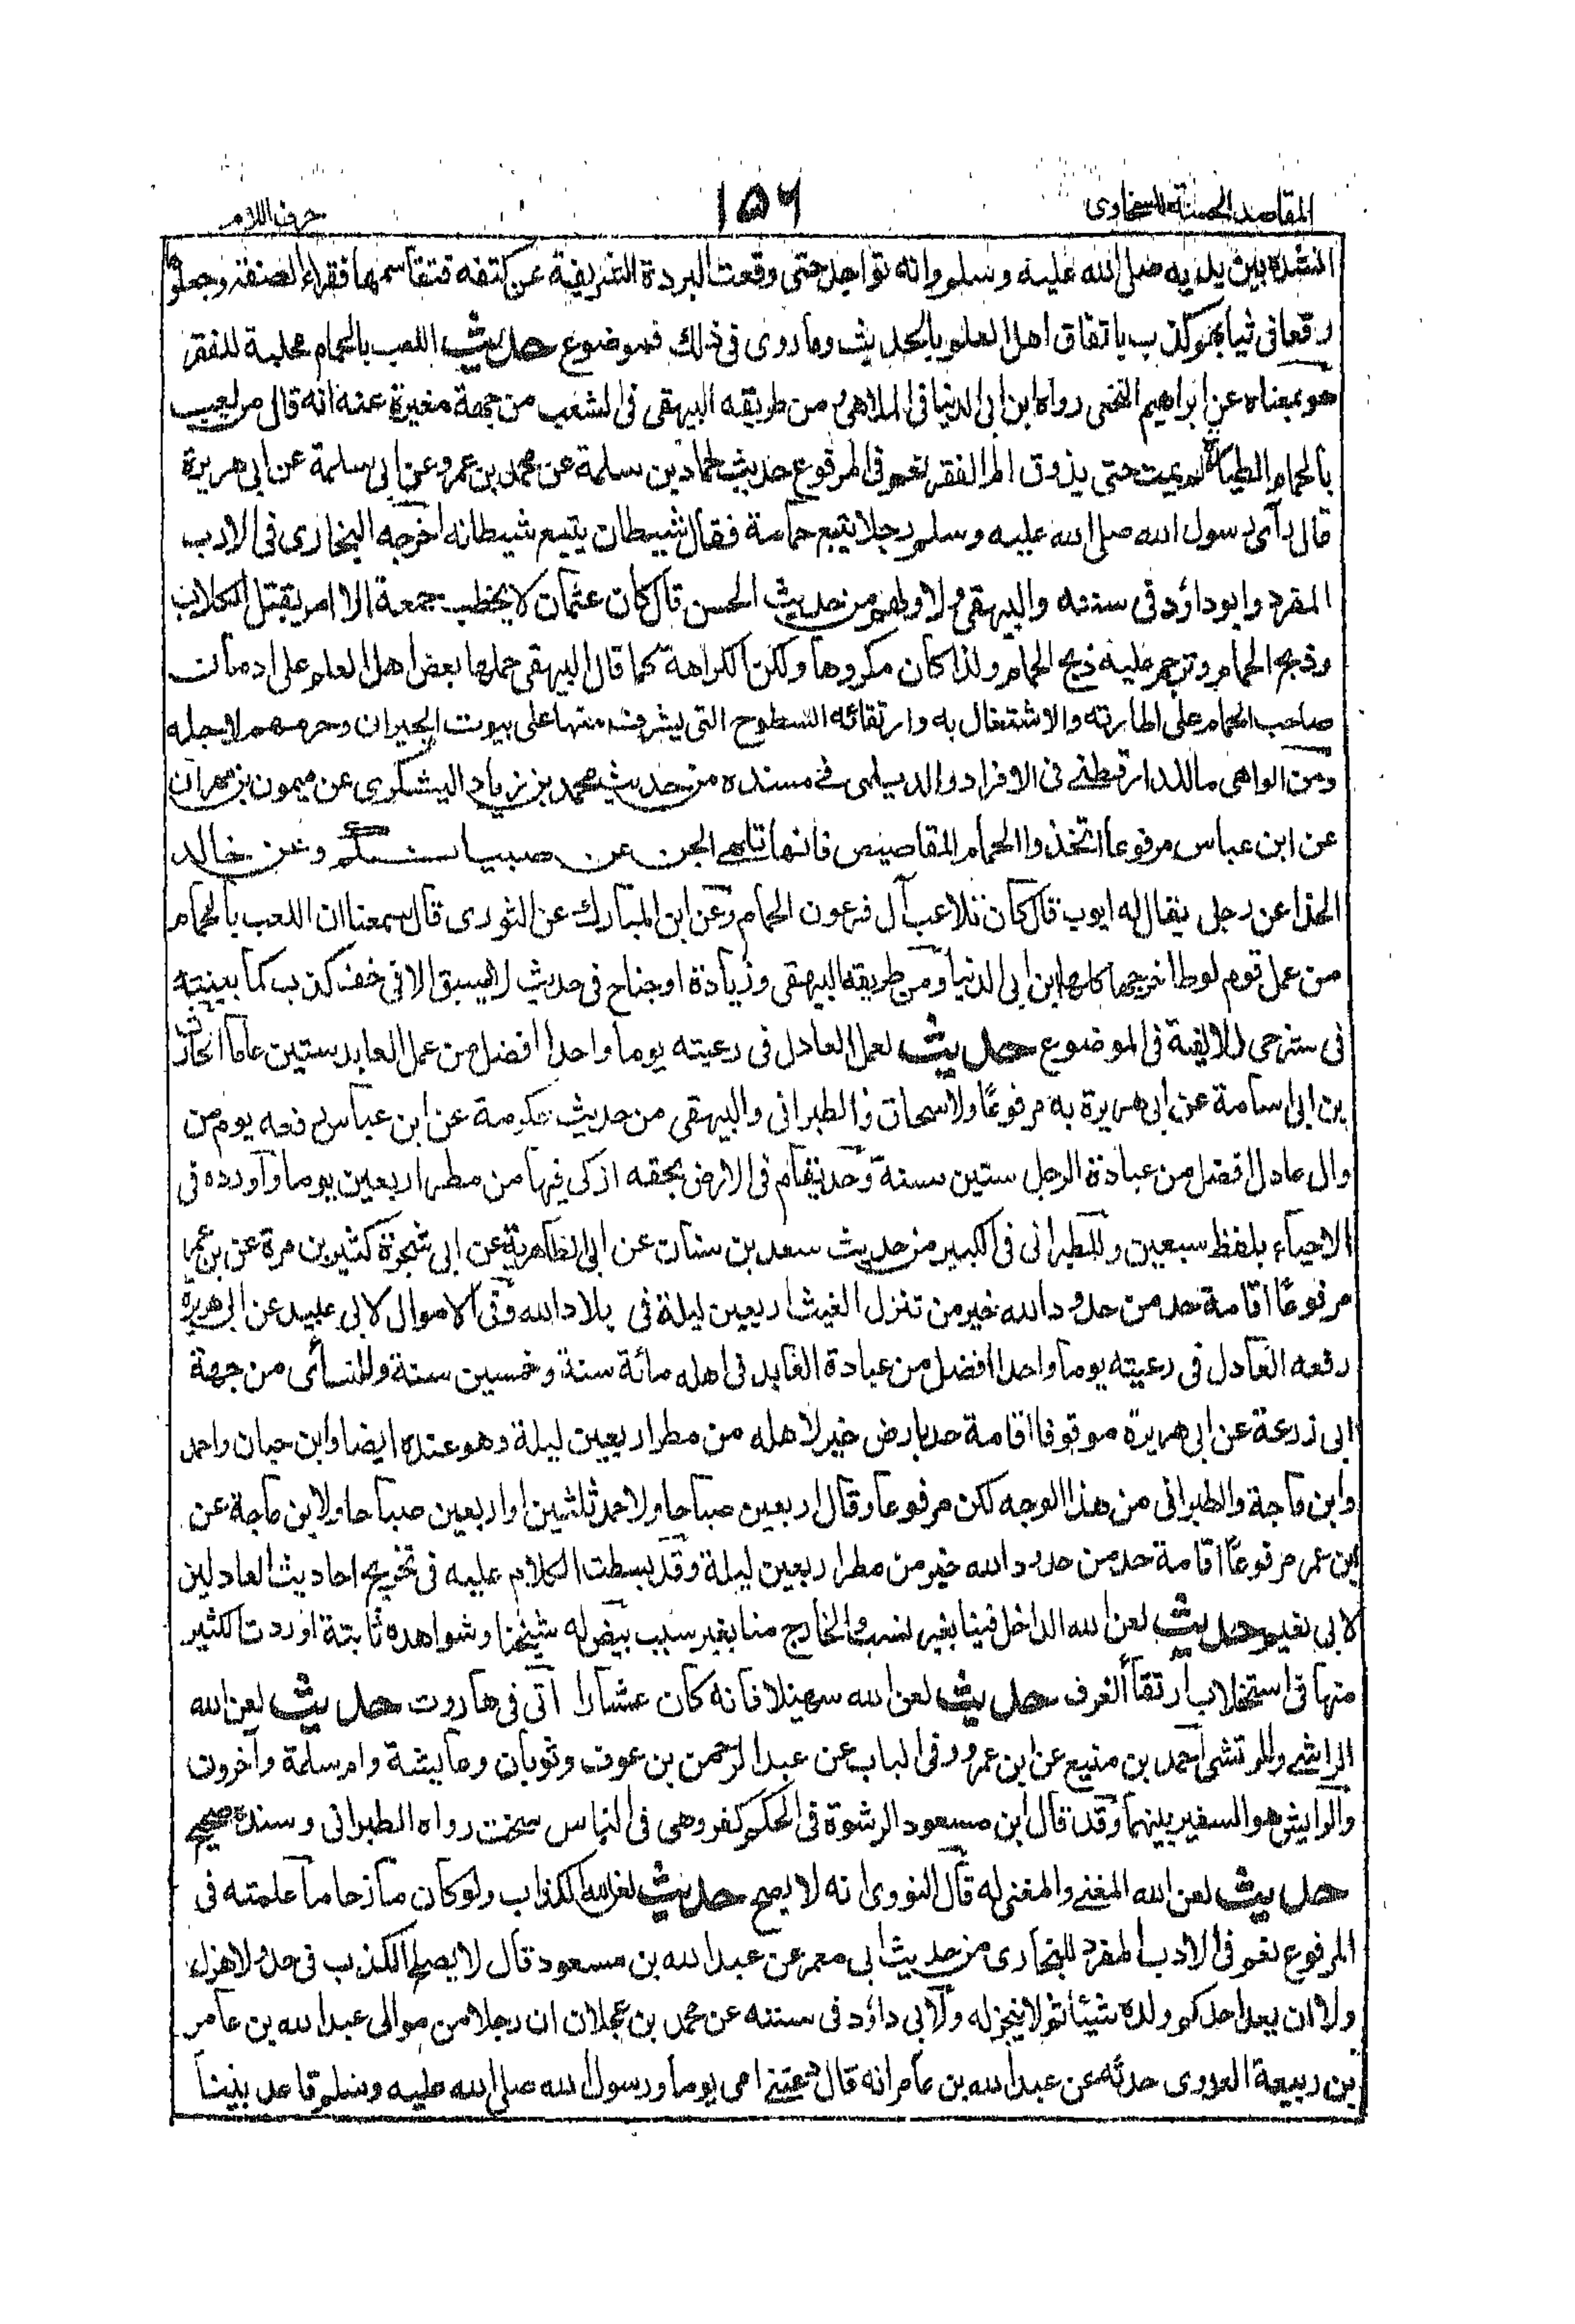 المقاصد الحسنة للسخاوى
١٥٦
حرف اللام
انشده بين يديه صلى الله عليه وسلم وانه تواجد حتى وقعت البردة الشريفة عن كتفه فتقاسمها فقراء الصفة وجعلوها
رقعا فى ثيابهم كذب باتفاق اهل العلم بالحديث وما روى فى ذلك فموضوع حديث اللعب بالحمام مجلبة للفقر
هو بمعناه عن ابراهيم النخعى رواه ابن ابى الدنيا فى الملاهى ومن طريقه البيهقى فى الشعب من جهة مغيرة عنه انه قال من لعب
بالحمام الطيارة لم يمت حتى يذوق الم الفقر نعم فى المرفوع حديث حماد بن سلمة عن محمد بن عمرو عن ابى سلمة عن ابى هريرة
قال رآى رسول الله صلى الله عليه وسلم رجلا يتبع حمامة فقال شيطان يتبع شيطانه اخرجه البخارى فى الادب
المفرد وابوداؤد فى سننه والبيهقى ولاولهم من حديث الحسن قال كان عثمان لا يخطب جمعة الا امر بقتل الكلاب
وذبح الحمام وترجم عليه ذبح الحمام ولذا كان مكروها ولكن الكراهة كما قال البيهقى حملها بعض اهل العلم على ادمان
صاحب الحمام على اطارته والاشتغال به وارتقائه السطوح التى يشرف منها على بيوت الجيران وحرمهم لاجله
ومن الواهى ما للدارقطنى فى الافراد والديلمى فى مسنده من حديث محمد بن زياد اليشكرى عن ميمون بن مهران
عن ابن عباس مرفوعا اتخذوا الحمام المقاصيص فانها تلهى الجن عن صبيانكم وعن خالد
الحذا عن رجل يقال له ايوب قال كان تلاعب آل فرعون الحمام وعن ابن المبارك عن الثورى قال سمعنا ان اللعب بالحمام
من عمل قوم لوط اخرجها كلها ابن ابى الدنيا ومن طريقه البيهقى وزيادة او جناح فى حديث لا سبق الا فى خف كذب كما بينته
فى شرحى للالفية فى الموضوع حديث لعمل العادل فى رعيته يوما واحدا افضل من عمل العابد ستين عاما الحارث
بن ابى اسامة عن ابى هريرة به مرفوعا ولاسحاق والطبرانى والبيهقى من حديث عكرمة عن ابن عباس رفعه يوم من
وال عادل افضل من عبادة الرجل ستين سنة وحد يقام فى الارض بحقه ازكى فيها من مطر اربعين يوما وآورده فى
الاحياء بلفظ سبعين وللطبرانى فى الكبير من حديث سعد بن سنان عن ابى الظاهرية عن ابى شجرة كثير بن مرة عن بن عمر
مرفوعا اقامة حد من حدود الله خير من تنزل الغيث اربعين ليلة فى بلاد الله وفى الاموال لابى عبيد عن ابى هريرة
رفعه العادل فى رعيته يوما واحدا افضل من عبادة العابد فى اهله مائة سنة وخمسين سنة وللنسائى من جهة
ابى زرعة عن ابى هريرة موقوفا اقامة حد بارض خير لاهله من مطر اربعين ليلة وهو عنده ايضا وابن حبان واحمد
وابن ماجة والطبرانى من هذا الوجه لكن مرفوعا وقال اربعين صباحا ولاحمد ثلثين او اربعين صباحا ولابن ماجة عن
ابن عمر مرفوعا اقامة حد من حدود الله خير من مطر اربعين ليلة وقد بسطت الكلام عليه فى تخريج احاديث العادلين
لابى نعيم حديث لعن الله الداخل فينا بغير نسب والخارج منا بغير سبب بيض له شيخنا وشواهده ثابتة اوردت الكثير
منها فى استجلاب ارتقا الغرف حديث لعن الله سهيلا فانه كان عشارا آتى فى هاروت حديث لعن الله
الراشى والمرتشى احمد بن منيع عن ابن عمرو وفى الباب عن عبد الرحمن بن عوف وثوبان وعايشة وام سلمة وآخرون
والرايش هو السفير بينهما وقد قال ابن مسعود الرشوة فى الحكم كفر وهى فى الناس سحت رواه الطبرانى وسنده صحيح
حديث لعن الله المغنى والمغنى له قال النووى انه لا يصح حديث لعن الله الكذاب ولو كان مازحا ما علمته فى
المرفوع نعم فى الادب المفرد للبخارى من حديث ابى معمر عن عبد الله بن مسعود قال لا يصلح الكذب فى جد ولا هزل
ولا ان يعد احدكم ولده شيئا ثم لا ينجز له ولابى داؤد فى سننه عن محمد بن عجلان ان رجلا من موالى عبد الله بن عامر
بن ربيعة العدوى حدثه عن عبد الله بن عامر انه قال دعتنى امى يوما ورسول الله صلى الله عليه وسلم قاعد بيننا